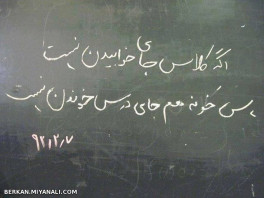 اگه کلاس جای خوابیدن نیست
پس خونه هم جای درس خوندن نیست
۹۲/۲/۷
BERKAN.MIYANALI.COM